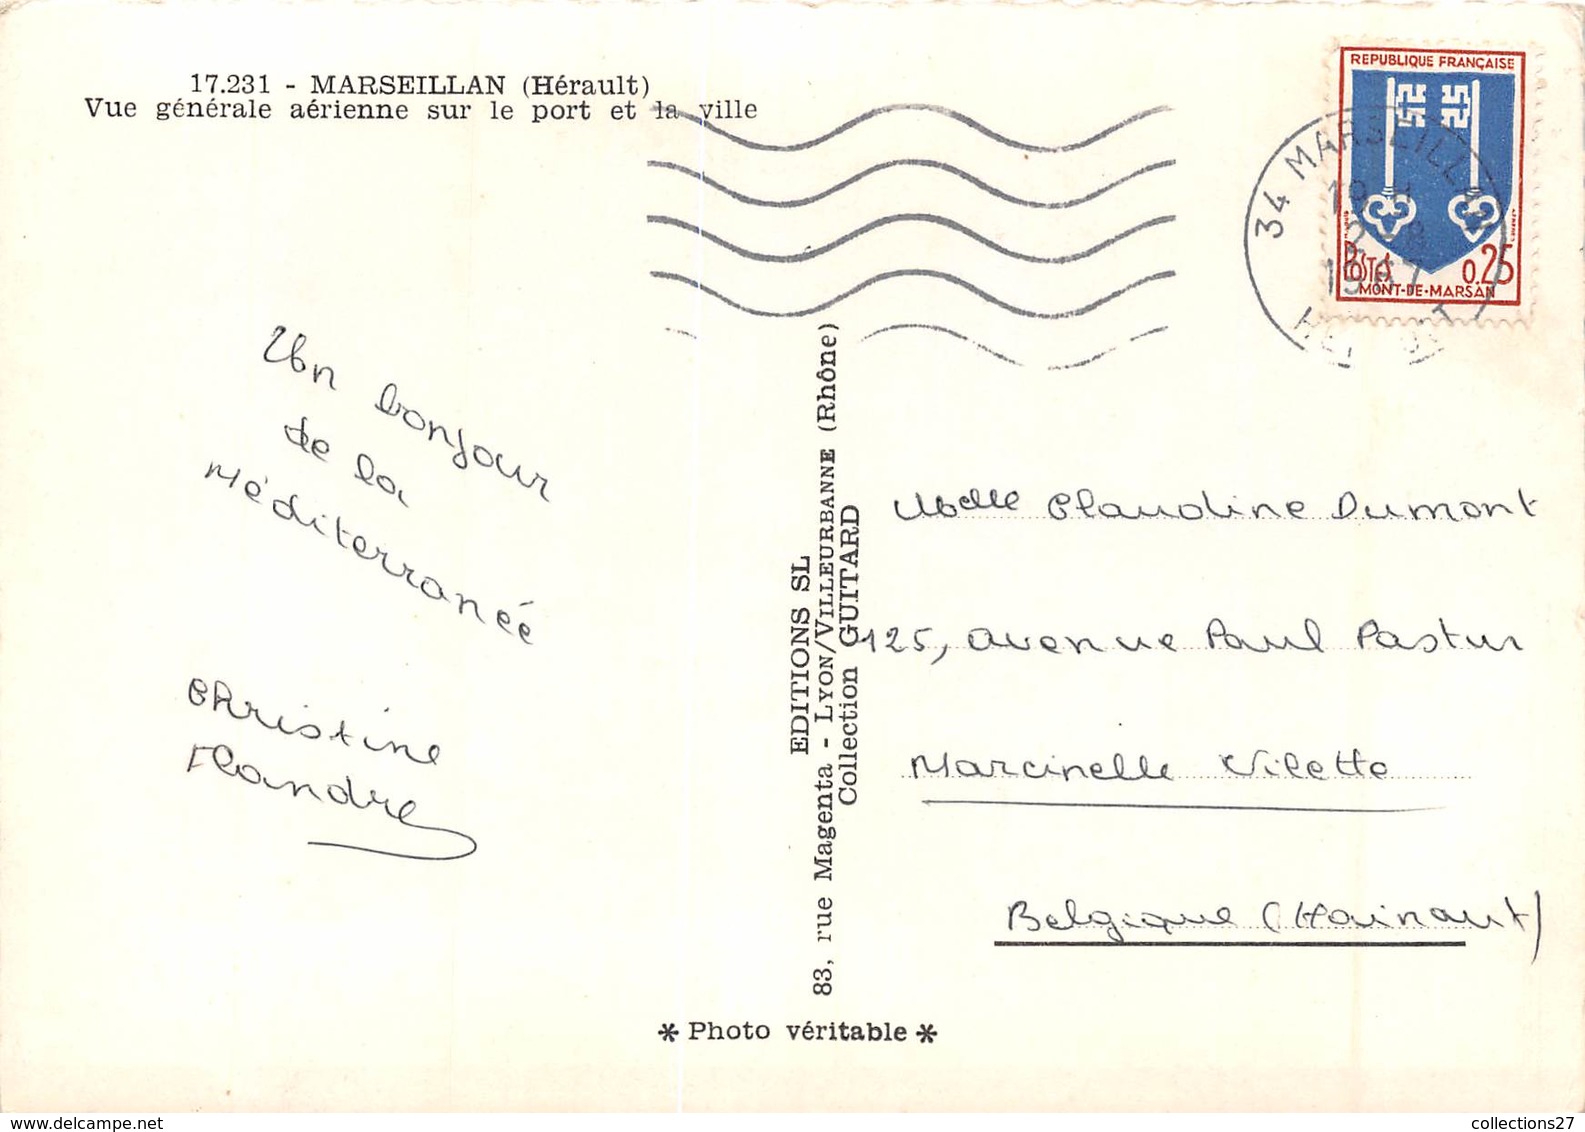 17.231 - MARSEILLAN (Hérault)
Vue générale aérienne sur le port et la ville
Un bonjour
de la
Méditerranée
Christine
Flandre
EDITIONS SL
83, rue Magenta - LYON/VILLEURBANNE (Rhône)
Collection GUITARD
* Photo véritable *
REPUBLIQUE FRANÇAISE
POSTES 0.25
MONT-DE-MARSAN
34 MARSEILLAN
19 H
2 - 8
1967
HERAULT
Melle Claudine Dumont
125, avenue Paul Pastur
Marcinelle Vilette
Belgique (Hainaut)
collections27